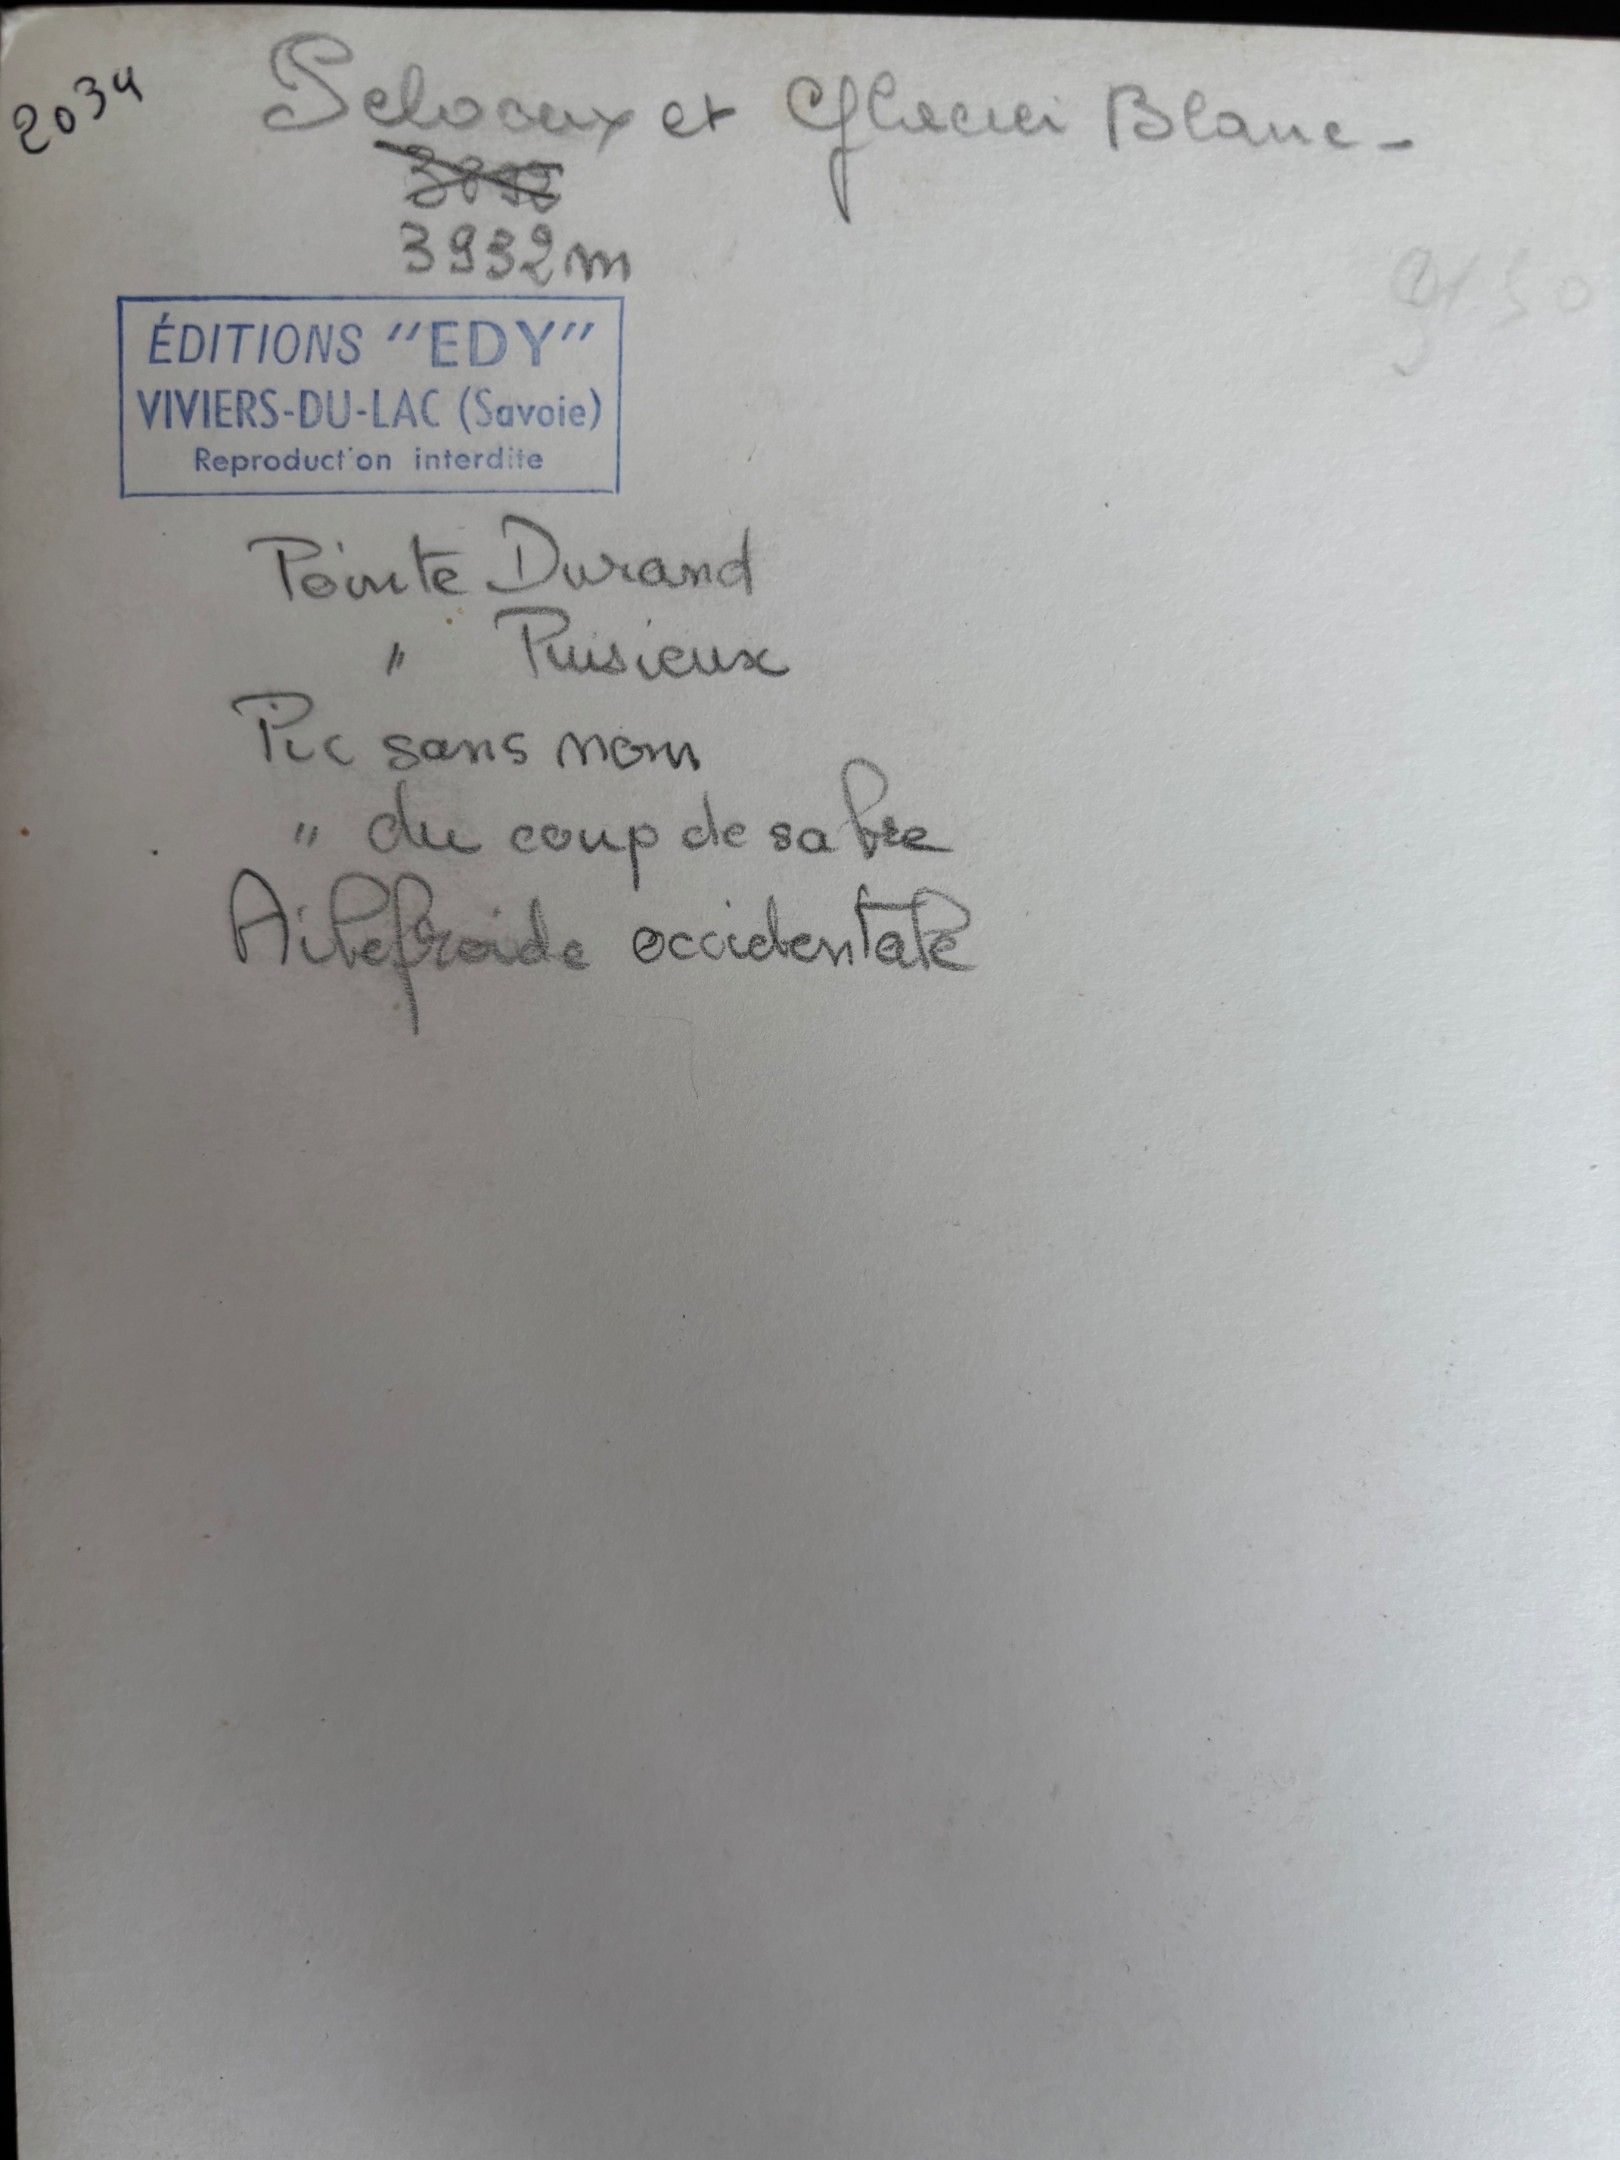 2034
Pelvoux et Glacier Blanc -
3932m
ÉDITIONS "EDY"
VIVIERS-DU-LAC (Savoie)
Reproduction interdite
Pointe Durand
" Puisieux
Pic sans nom
" du coup de sabre
Ailefroide occidentale